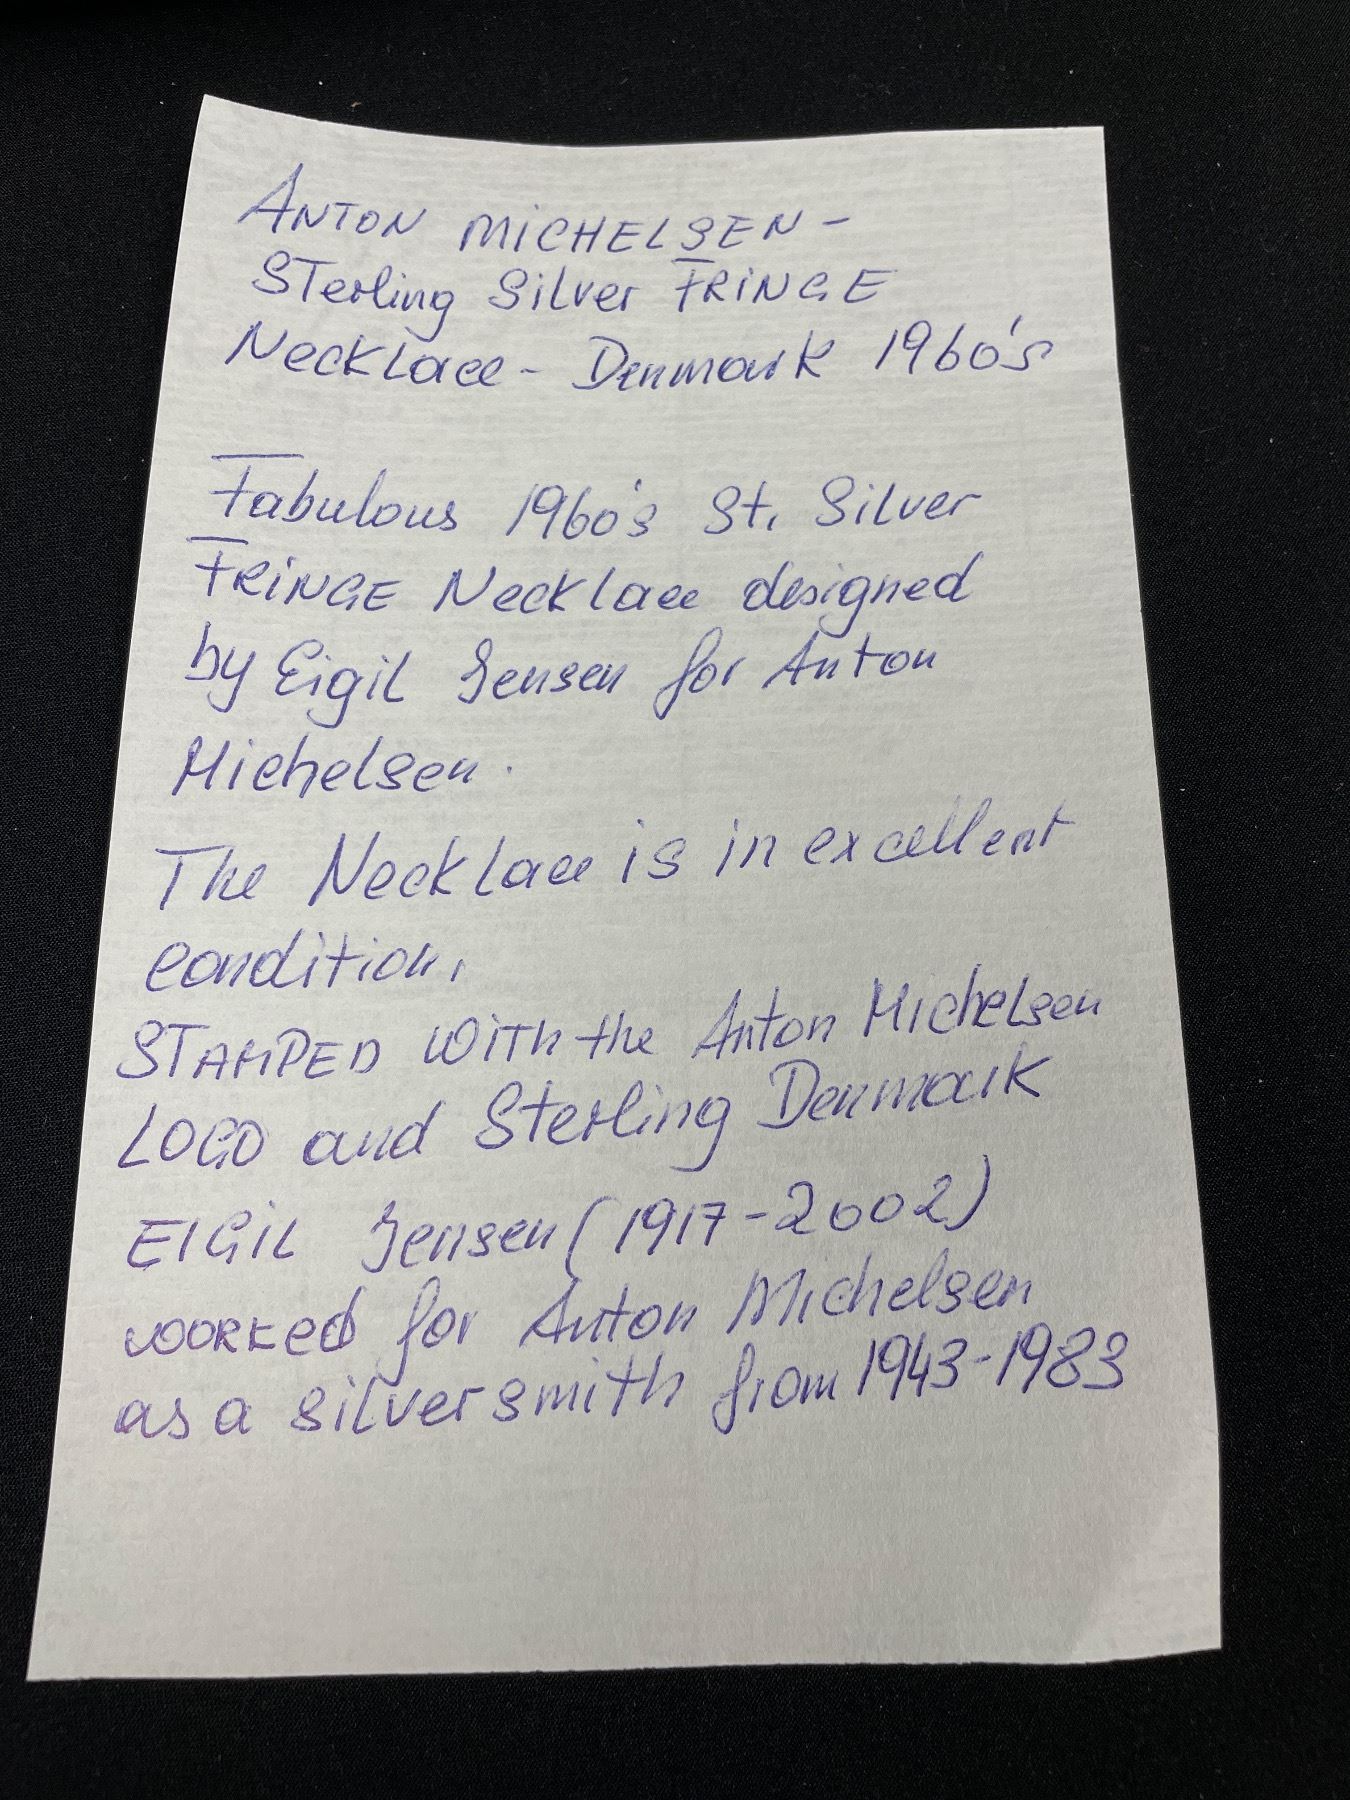 ANTON MICHELSEN -
STerling Silver FRINGE
Necklace - Denmark 1960's
Fabulous 1960's St. Silver
FRINGE Necklace designed
by Eigil Jensen for Anton
Michelsen.
The Necklace is in excellent
condition.
STAMPED With the Anton Michelsen
LOGO and Sterling Denmark
EIGIL Jensen (1917-2002)
worked for Anton Michelsen
as a silversmith from 1943-1983